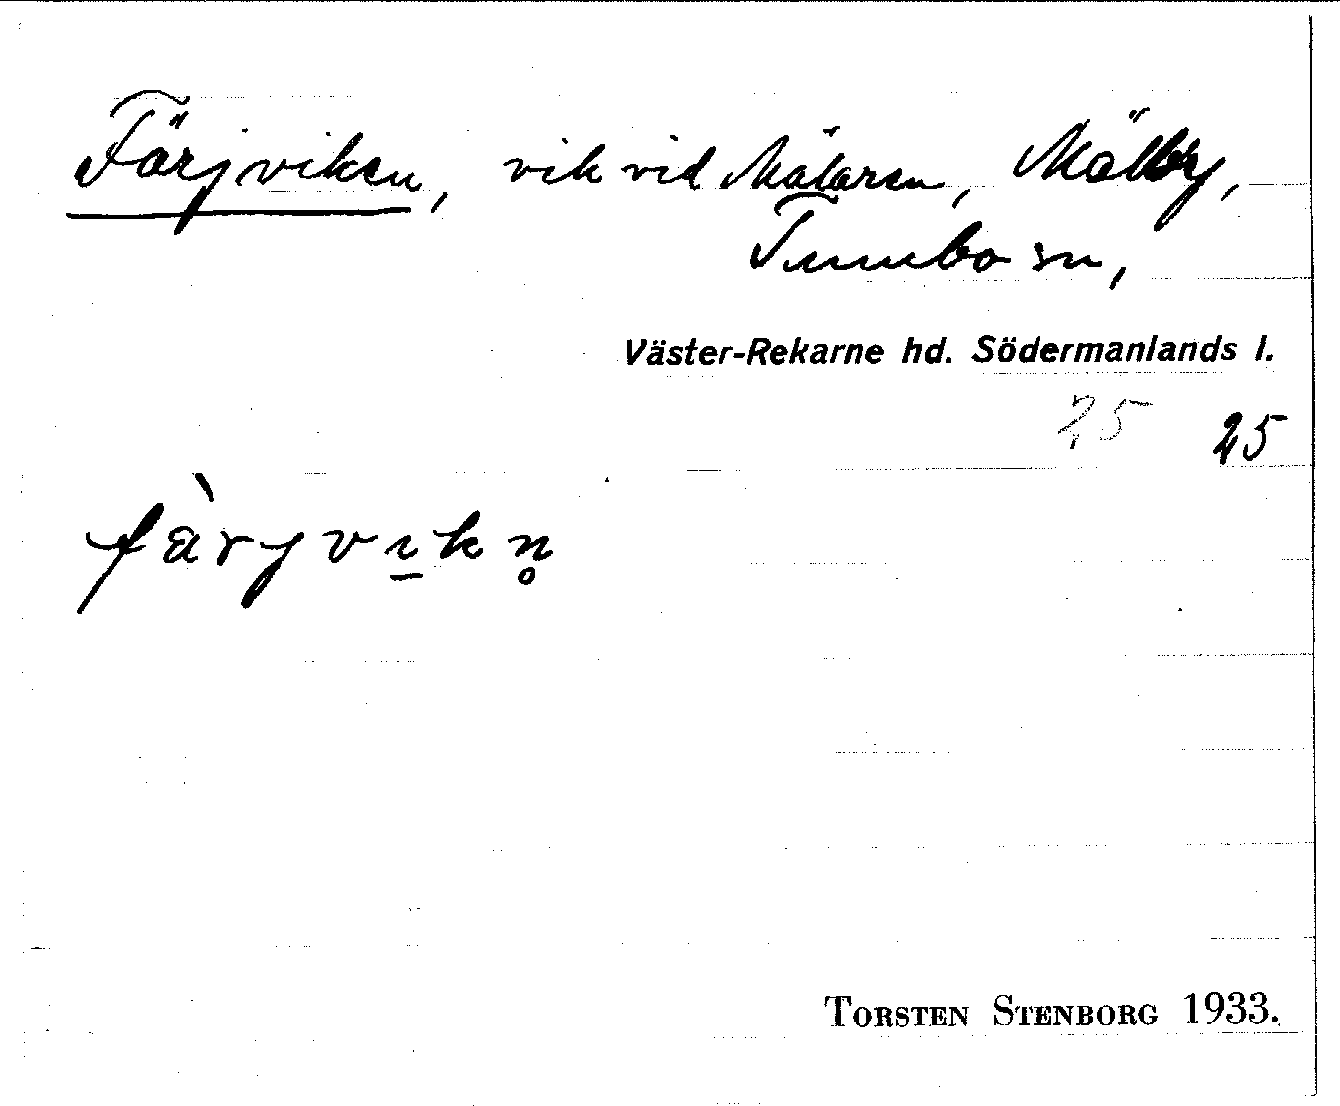 Färjviken, vik vid Mälaren, Mälby,
Tumbo sn,
Väster-Rekarne hd. Södermanlands l.
25 25
fàrjvı̲kn̥
TORSTEN STENBORG 1933.